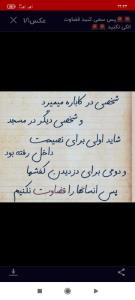 ۲۲:۲۳
عکس۱/۱
🚨🚨پس سعی کنید قضاوت
الکی نکنید🚨🚨
شخصی در کاباره میمیرد
و شخصی دیگر در مسجد
شاید اولی برای نصیحت
داخل رفته بود
و دومی برای دزدیدن کفشها
پس انسانها را قضاوت نکنیم